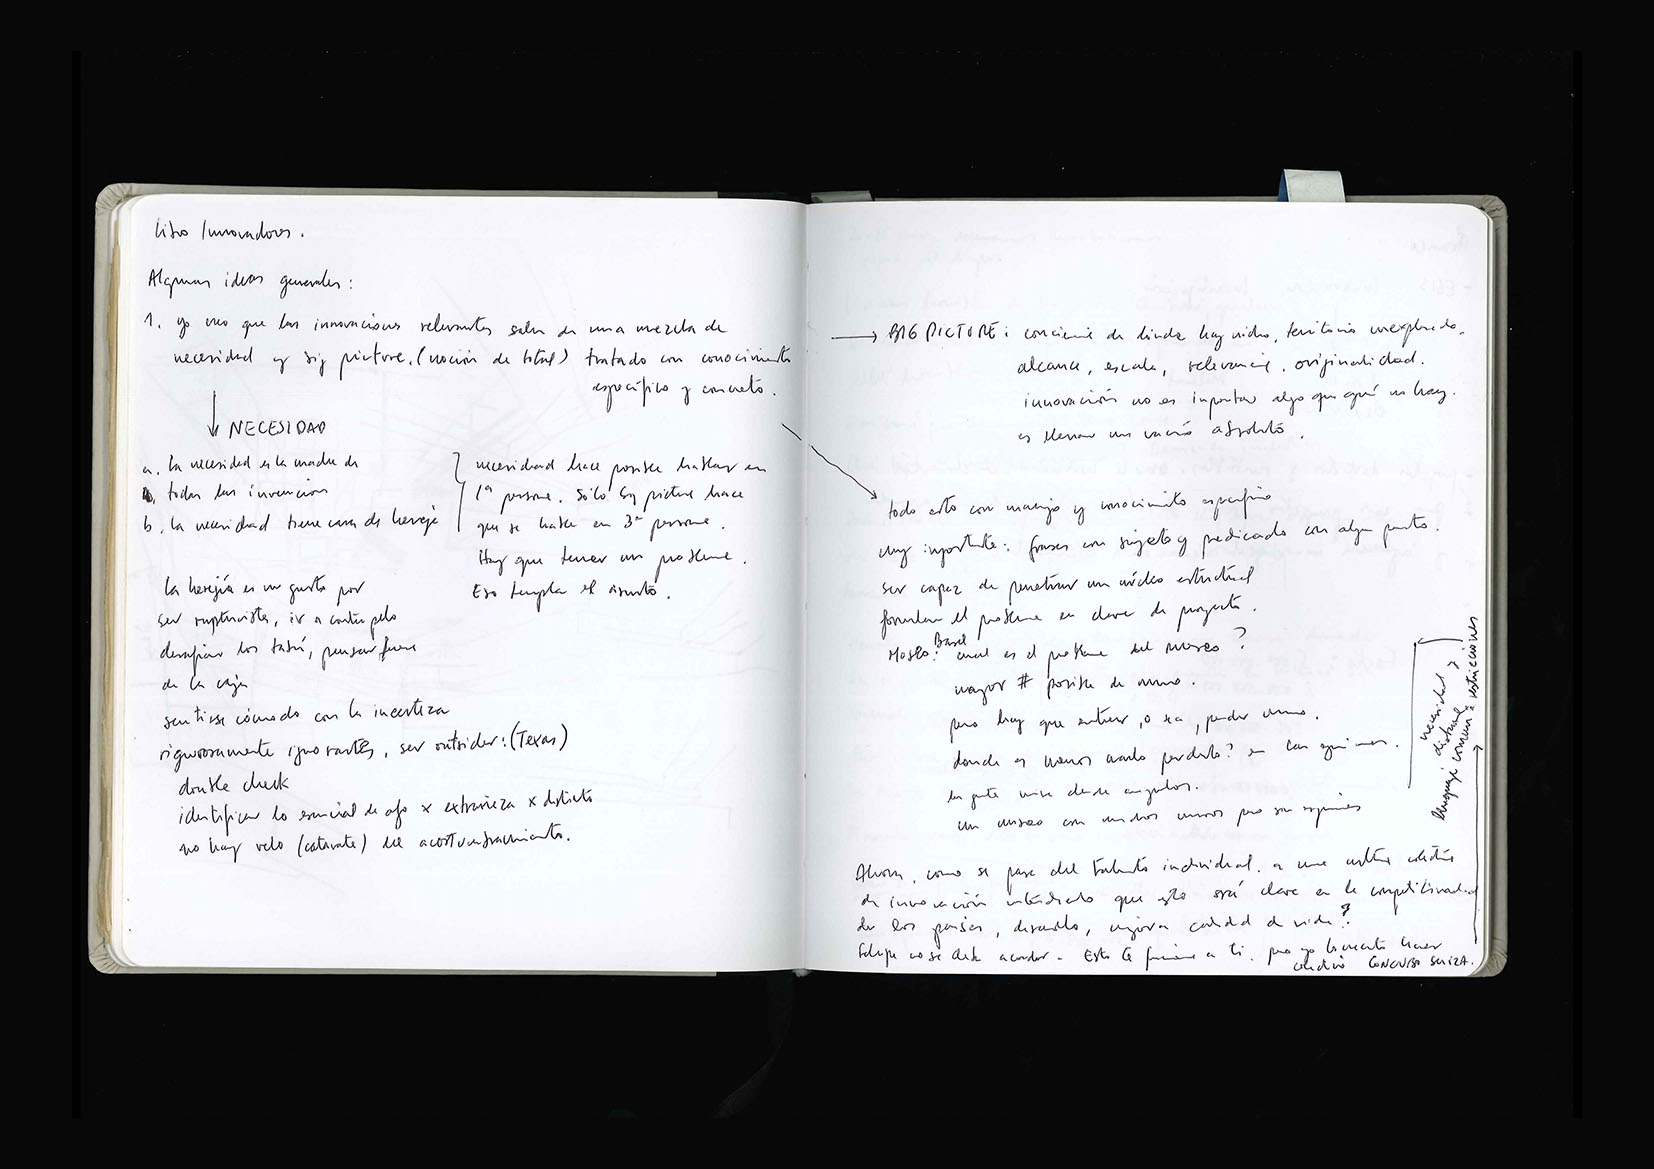 Libro Innovadores.
Algunas ideas generales:
1. yo creo que las innovaciones relevantes salen de una mezcla de
necesidad y big picture. (noción de total) tratado con conocimiento
específico y concreto.
NECESIDAD
a. la necesidad es la madre de
todas las invenciones
b. la necesidad tiene cara de hereje
necesidad hace posible hablar en
1ª persona. Sólo big picture hace
que se hable en 3ª persona.
Hay que tener un problema.
Eso templa el asunto.
la herejía es un gusto por
ser rupturista, ir a contrapelo
desafiar los tabú, pensar fuera
de la caja
sentirse cómodo con la incerteza
rigurosamente ignorantes, ser outsider: (Texas)
double check
identificar lo esencial de algo x extrañeza x distinto
no hay velo (catarata) del acostumbramiento.
BIG PICTURE: conciencia de donde hay nicho, territorio inexplorado.
alcance, escala, relevancia, originalidad.
innovación no es importar algo que aquí no hay.
es llenar un vacío absoluto.
todo esto con manejo y conocimiento específico
muy importante: frases con sujeto y predicado con algún punto.
ser capaz de penetrar un núcleo estructural
formular el problema en clave de proyecto.
Museo Basel: cual es el problema del museo?
mayor # posible de muros.
pero hay que entrar, o sea, perder muro.
donde es menos malo perderlo? en las esquinas.
la gente mira desde ángulos.
un museo con muchos muros pero sin esquinas
necesidad >
distancia
lenguaje común = restricciones
Ahora, como se pasa del talento individual a una cultura colectiva
de innovación entendiendo que esto será clave en la competitividad
de los países, desarrollo, mejora calidad de vida?
Felipe no se debe acordar. Esto te funciona a ti, pero yo
CONCURSO SUIZA.